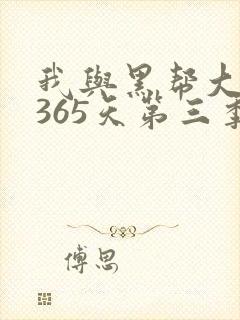 我與黑帮大
365天第三季
傅思